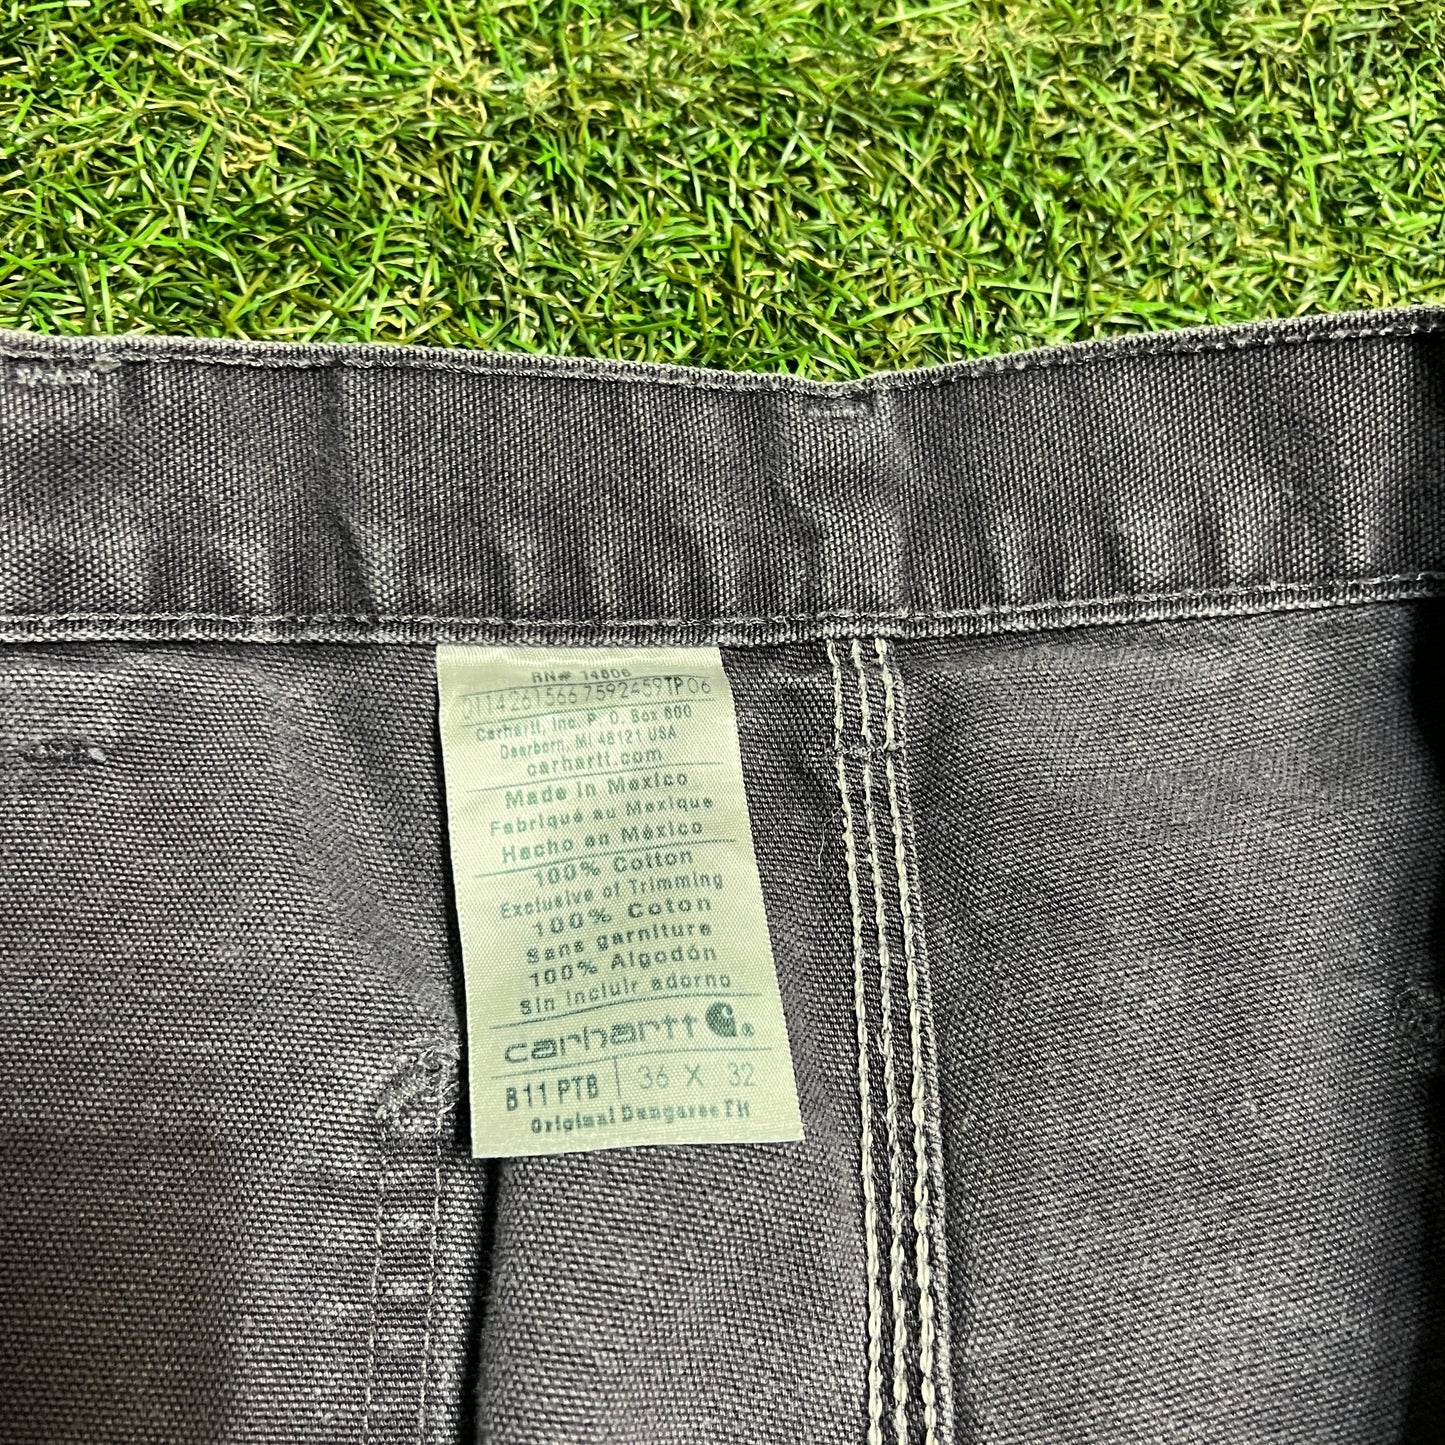 RN# 14806
0114261566 7592459TP06
Carhartt, Inc. P. O. Box 600
Dearborn, MI 48121 USA
carhartt.com
Made in Mexico
Fabriqué au Mexique
Hecho en México
100% Cotton
Exclusive of Trimming
100% Coton
Sans garniture
100% Algodón
Sin incluir adorno
carhartt ®
B11 PTB 36 X 32
Original Dungaree Fit